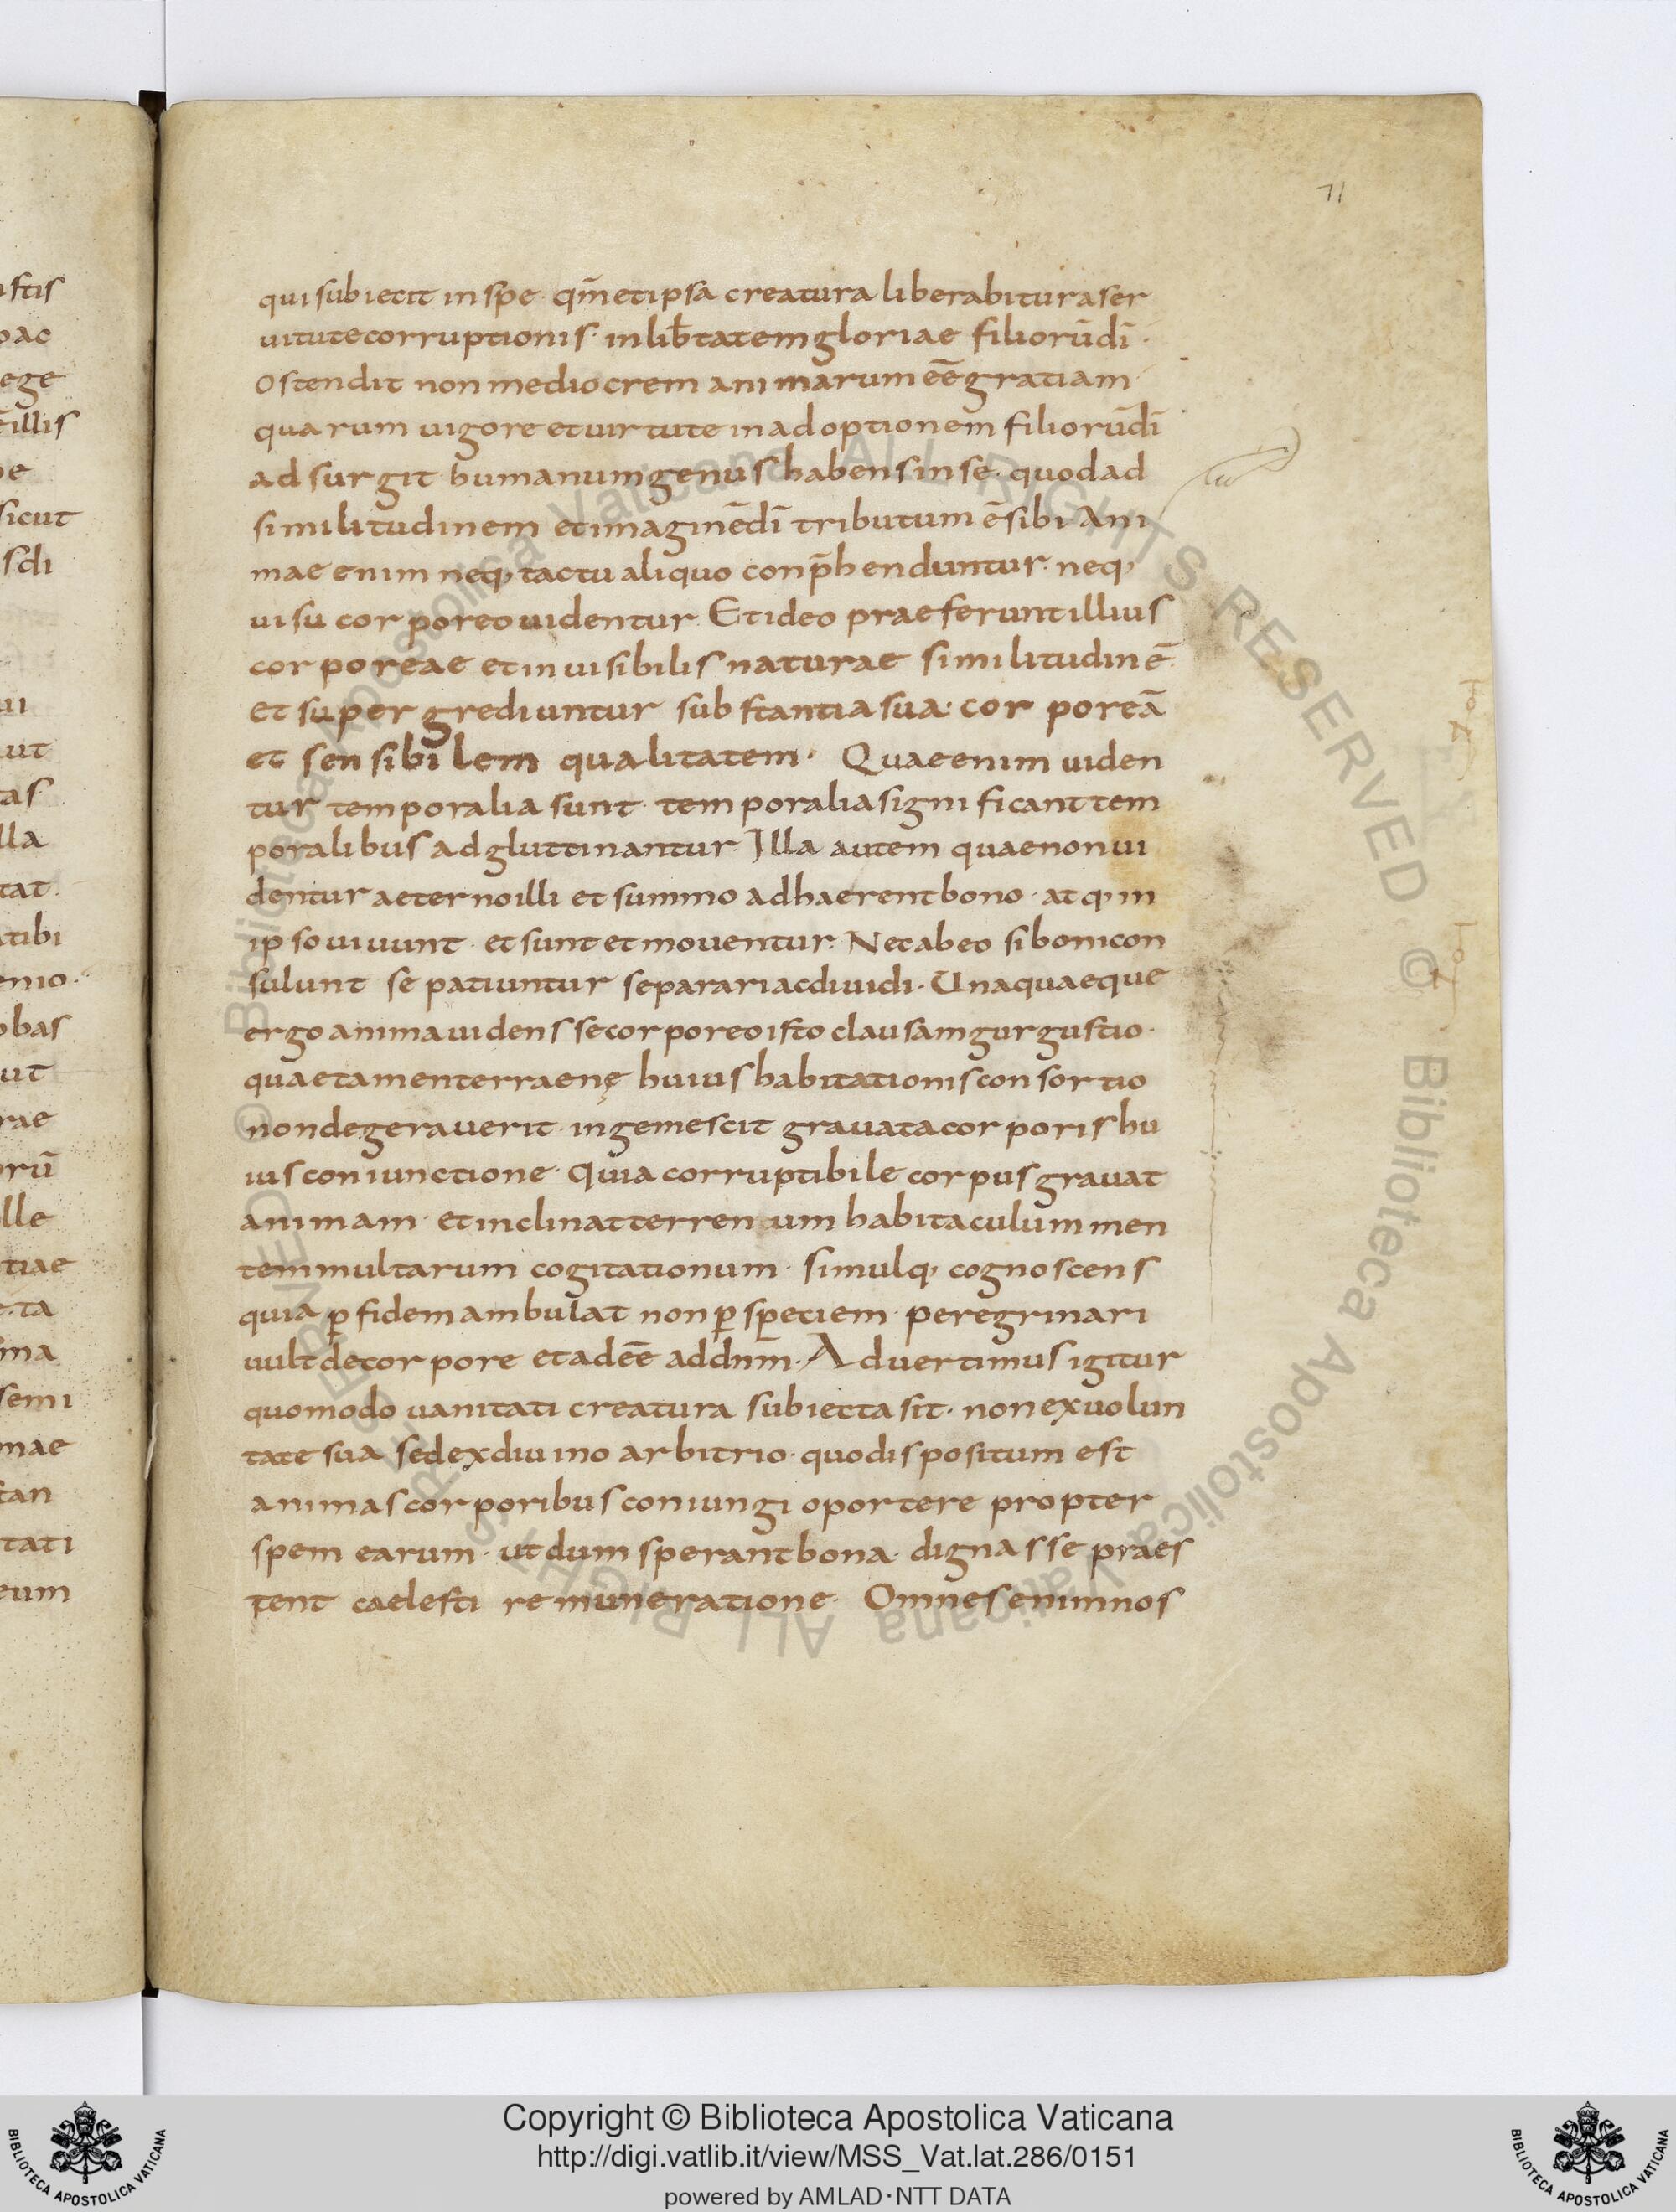 71
qui subiecit in spe · qm̄ et ipsa creatura liberabitur a ser
uitute corruptionis · in lib̄tatem gloriae filiorū dī ·
Ostendit non mediocrem animarum eē gratiam
quarum uigore et uirtute in adoptionem filiorū dī
ad surgit humanum genus habens in se · quod ad
similitudinem et imaginē dī tributum ē sibi Ani
mae enim neq, tactu aliquo conp̄henduntur · neq,
uisu corporeo uidentur. Et ideo praeferunt illius
corporeae et inuisibilis naturae similitudinē
et supergrediuntur substantia sua · corporeā
et sensibilem qualitatem · Quae enim uiden
tur temporalia sunt · temporalia significant tem
poralibus adgluttinantur. Illa autem quae non ui
dentur aeterno illi et summo adhaerent bono · atq, in
ipso uiuunt · et sunt et mouentur. Nec ab eo si boni con
sulunt se patiuntur separari ac diuidi · Unaquaeque
ergo anima uidens se corporeo isto clausam gurgustio ·
quae tamen terraenę huius habitationis consortio
non degerauerit · ingemescit grauata corporis hu
ius coniunctione · Quia corruptibile corpus grauat
animam · et inclinat terrenum habitaculum men
tem multarum cogitationum · simulq, cognoscens
quia ꝑ fidem ambulat non ꝑ speciem · peregrinari
uult de corpore et adeē ad dnm̄ · Aduertimus igitur
quomodo uanitati creatura subiecta sit · non ex uolun
tate sua sed ex diuino arbitrio · quo dispositum est
animas corporibus coniungi oportere propter
spem earum · ut dum sperant bona · dignas se praes
tent caelesti remuneratione · Omnes enim nos
istis
ac
ege
illis
sicut
sdi
ui
ut
tas
lla
tat
tibi
enio ·
obas
ut
rae
orū
lle
tiae
ta
ma
semi
mae
tan
tati
eum
© Biblioteca Apostolica Vaticana ALL RIGHTS RESERVED © Biblioteca Apostolica Vaticana ALL RIGHTS RESERVED
BIBLIOTECA APOSTOLICA VATICANA
Copyright © Biblioteca Apostolica Vaticana
http://digi.vatlib.it/view/MSS_Vat.lat.286/0151
powered by AMLAD·NTT DATA
BIBLIOTECA APOSTOLICA VATICANA